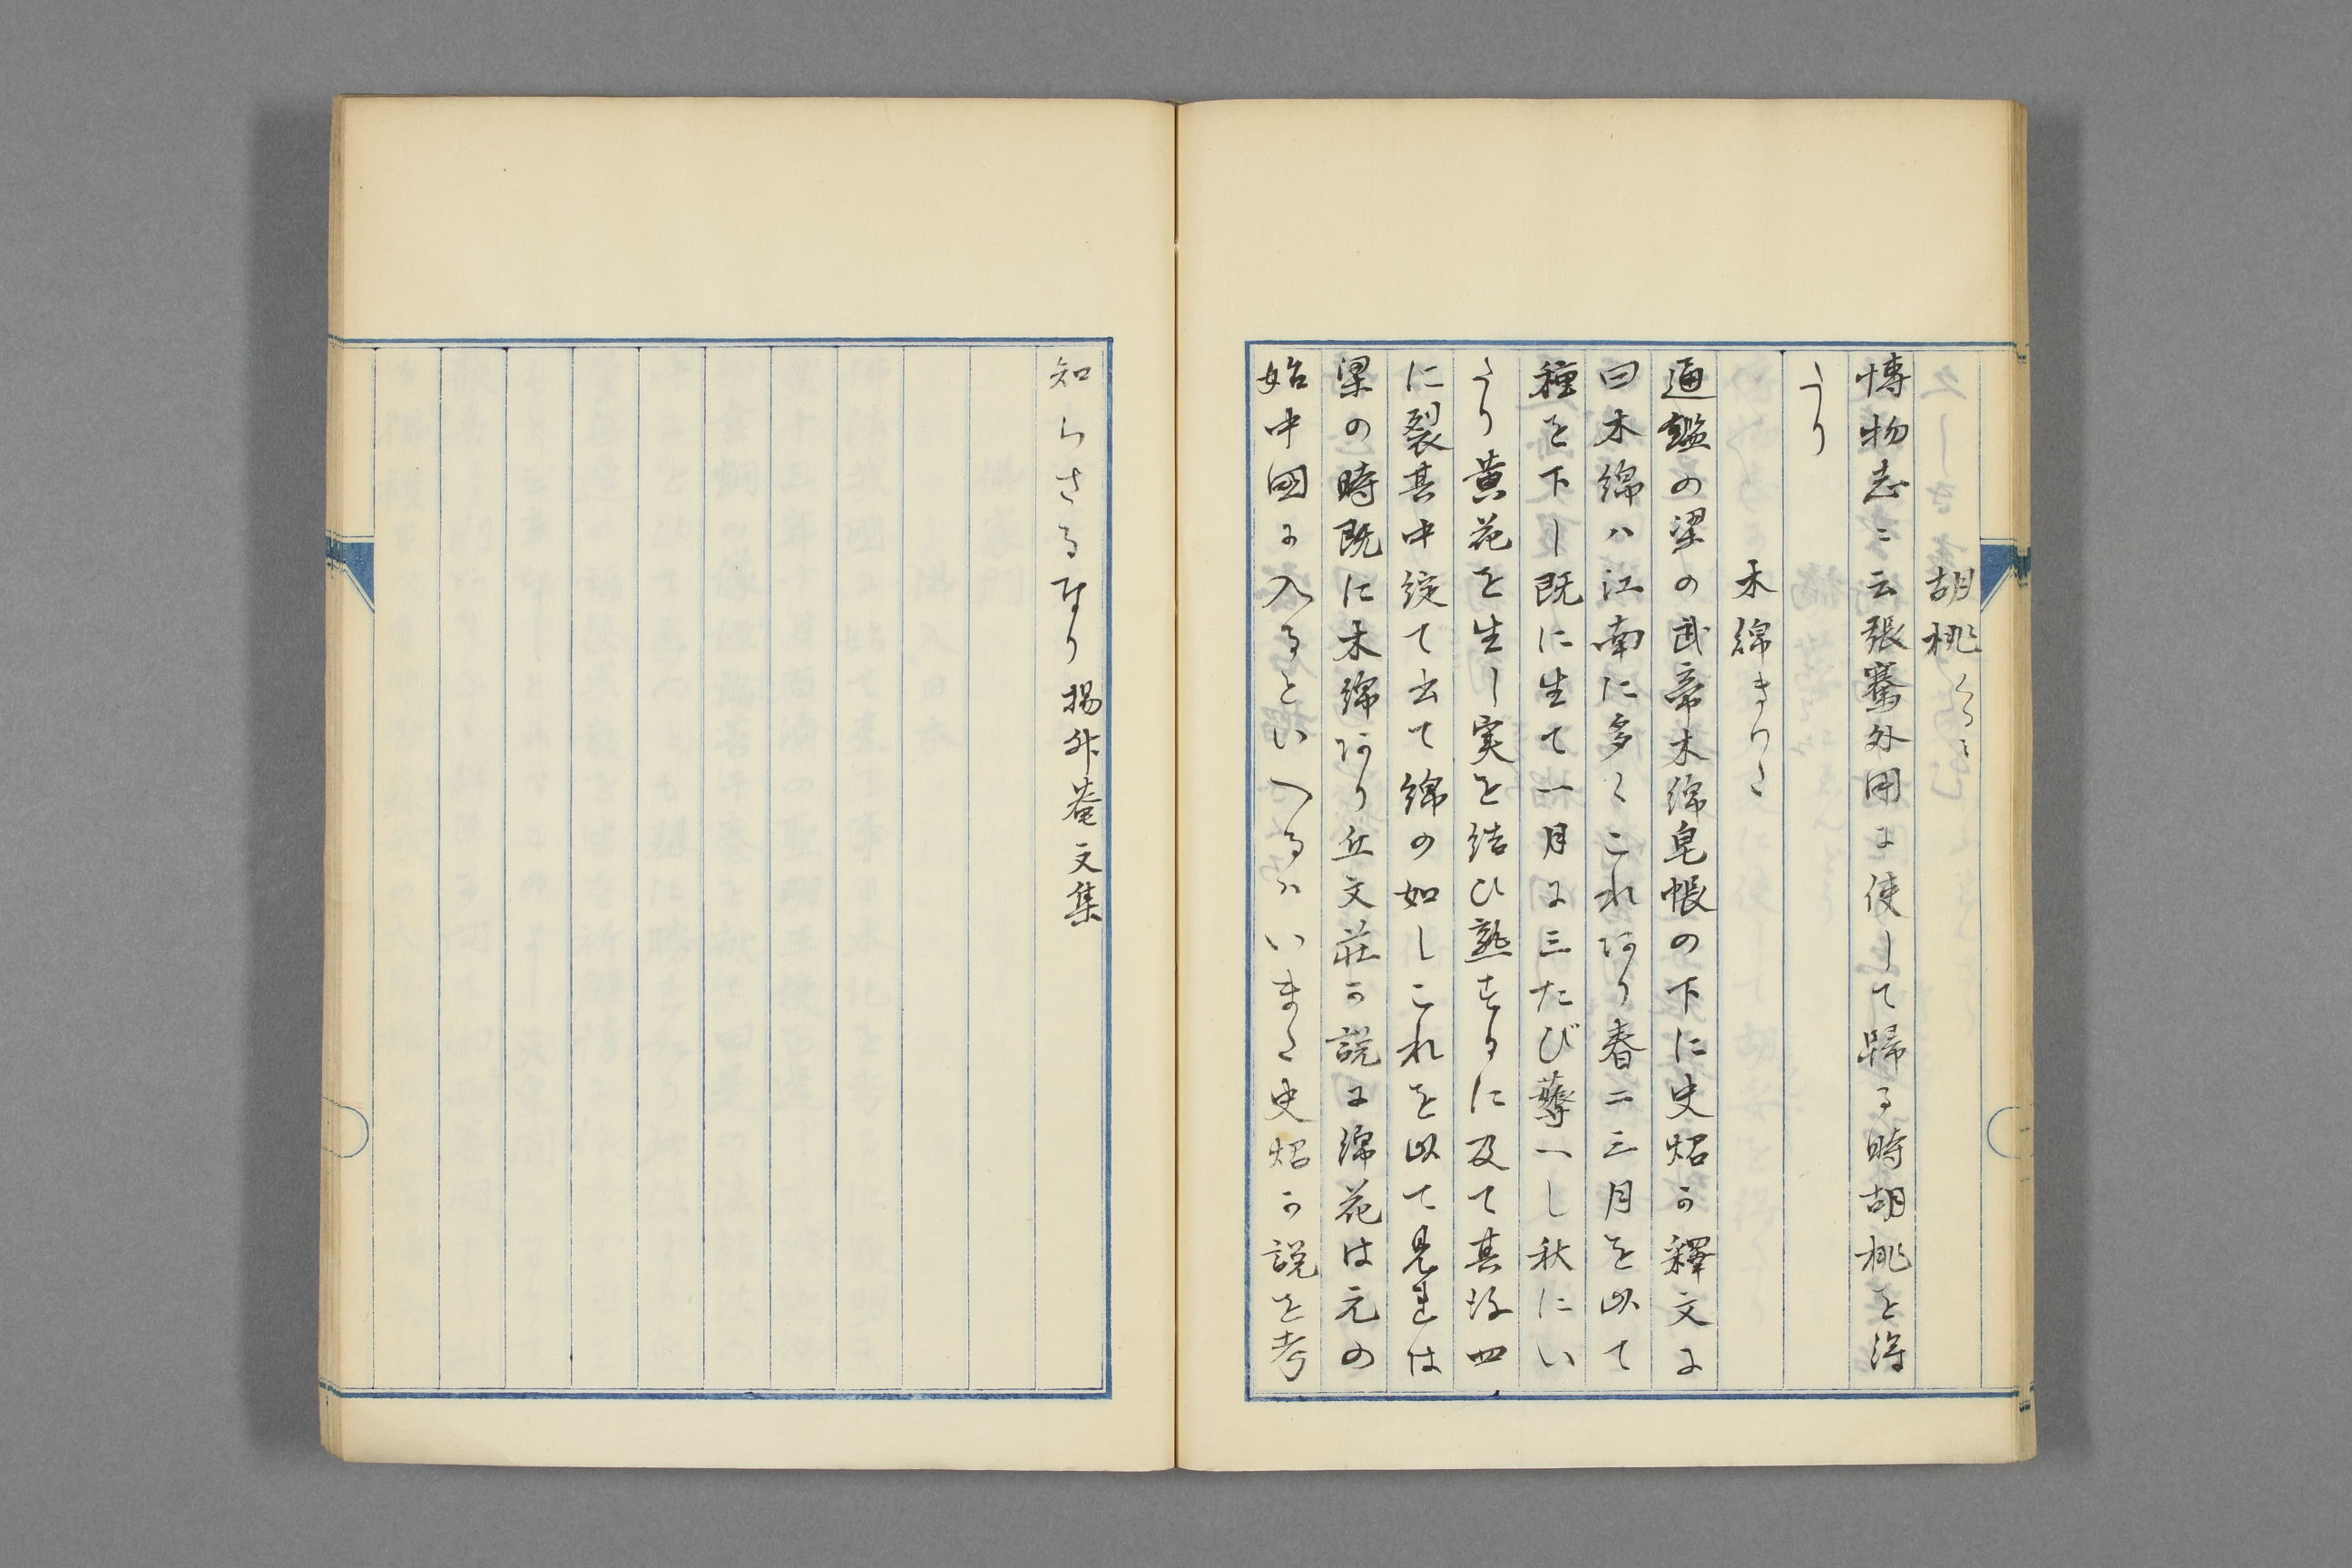 胡桃くるミ
博物志ニ云張騫外国に使して歸る時胡桃を得
たり
木綿きわた
通鑑の梁の武帝木綿皂帳の下に史炤か釋文に
曰木綿ハ江南に多くこれあり春二三月を以て
種を下し既に生て一月に三たび薅へし秋にい
たり黄花を生し実を結ひ熟するに及て其皮四
に裂其中綻て出て綿の如しこれを以て見れは
梁の時既に木綿あり丘文莊か説に綿花は元の
始中國に入るといへるハいまた史炤か説を考
知らさるなり 楊升菴文集